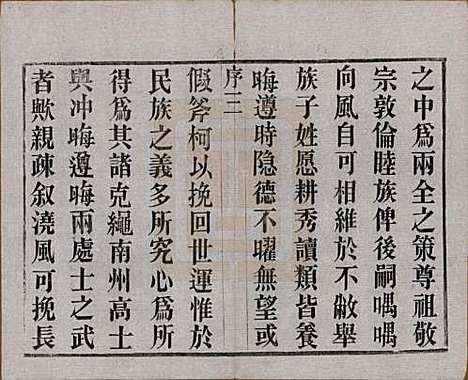 之中爲兩全之策尊祖敬
宗敦倫睦族俾後嗣喁喁
向風自可相維於不敝舉
族子姓愿耕秀讀類皆養
晦遵時隐德不曜無望或
序三
假斧柯以挽回世運惟於
民族之義多所究心爲所
得爲其諸克繩南州高士
與冲晦遵晦兩處士之武
者歟親疎叙澆風可挽長